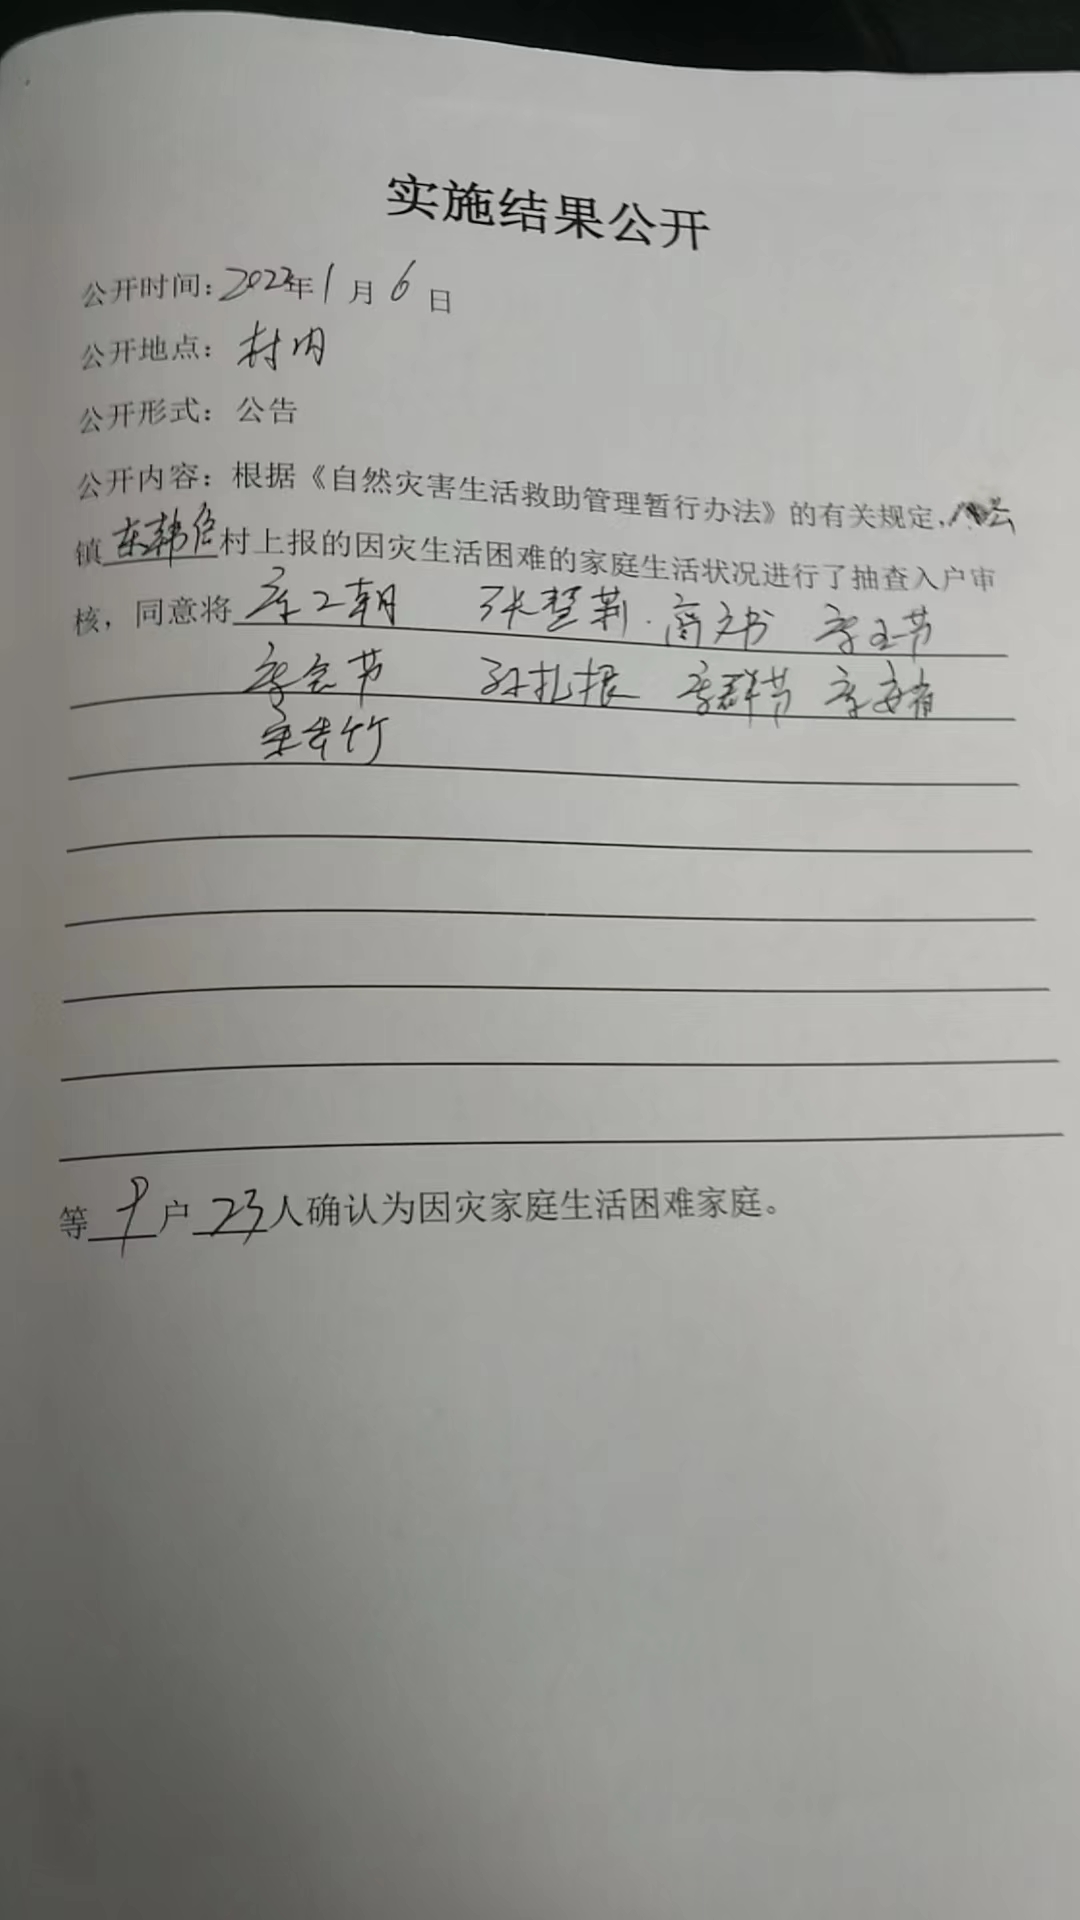 实施结果公开
公开时间：2022年1月6日
公开地点：村内
公开形式：公告
公开内容：根据《自然灾害生活救助管理暂行办法》的有关规定，
镇东韩信村上报的因灾生活困难的家庭生活状况进行了抽查入户审
核，同意将 李二朝 张慧莉 商文书 李玉节
李会节 孙扎根 李群节 李安省
竹
等 9 户 23 人确认为因灾家庭生活困难家庭。